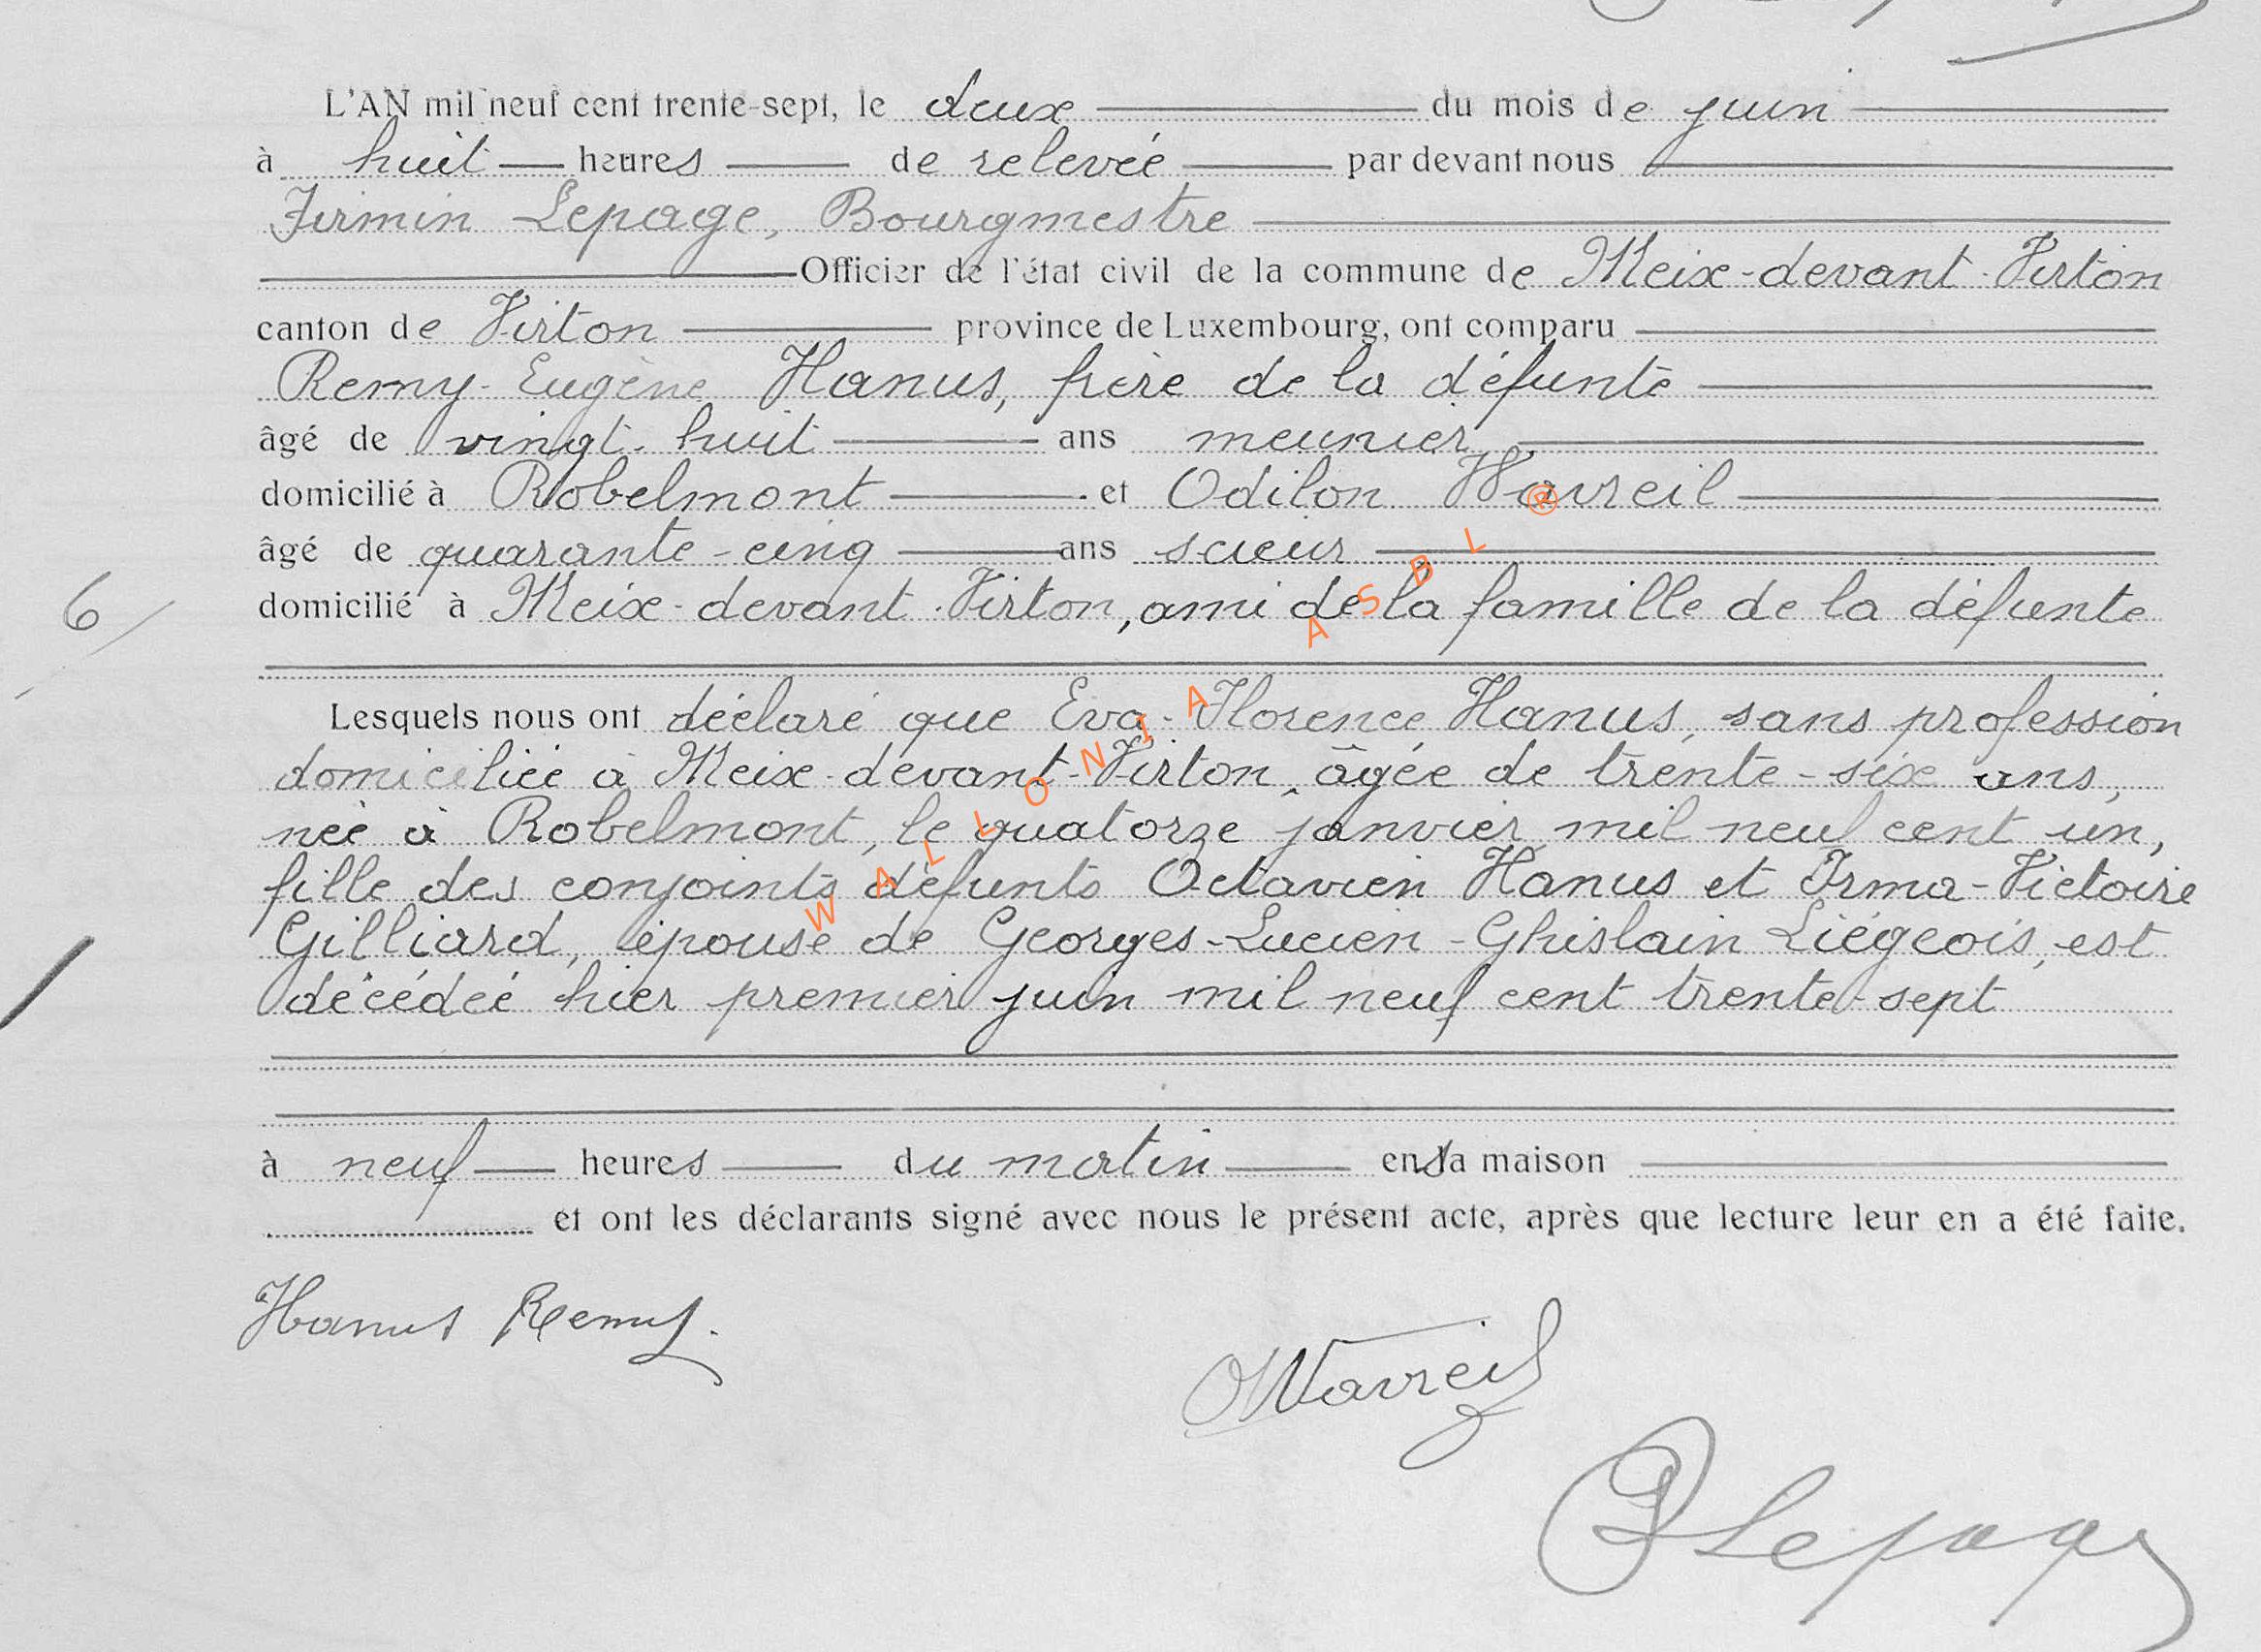 L'AN mil neuf cent trente-sept, le deux du mois de juin
à huit heures de relevée par devant nous
Firmin Lepage, Bourgmestre
Officier de l'état civil de la commune de Meix-devant-Virton
canton de Virton province de Luxembourg, ont comparu
Remy-Eugène Hanus, frère de la défunte
âgé de vingt-huit ans meunier
domicilié à Robelmont et Odilon Wavreil
âgé de quarante-cinq ans scieur
6/ domicilié à Meix-devant-Virton, ami de la famille de la défunte
Lesquels nous ont déclaré que Eva-Florence Hanus, sans profession
domiciliée à Meix-devant-Virton, âgée de trente-six ans,
née à Robelmont, le quatorze janvier mil neuf cent un,
fille des conjoints défunts Octavien Hanus et Irma-Victoire
Gilliard, épouse de Georges-Lucien-Ghislain Liégeois, est
décédée hier premier juin mil neuf cent trente-sept
à neuf heures du matin en sa maison
et ont les déclarants signé avec nous le présent acte, après que lecture leur en a été faite.
Hanus Remy.
OWavreil
FLepage
WALLONIA ASBL ®